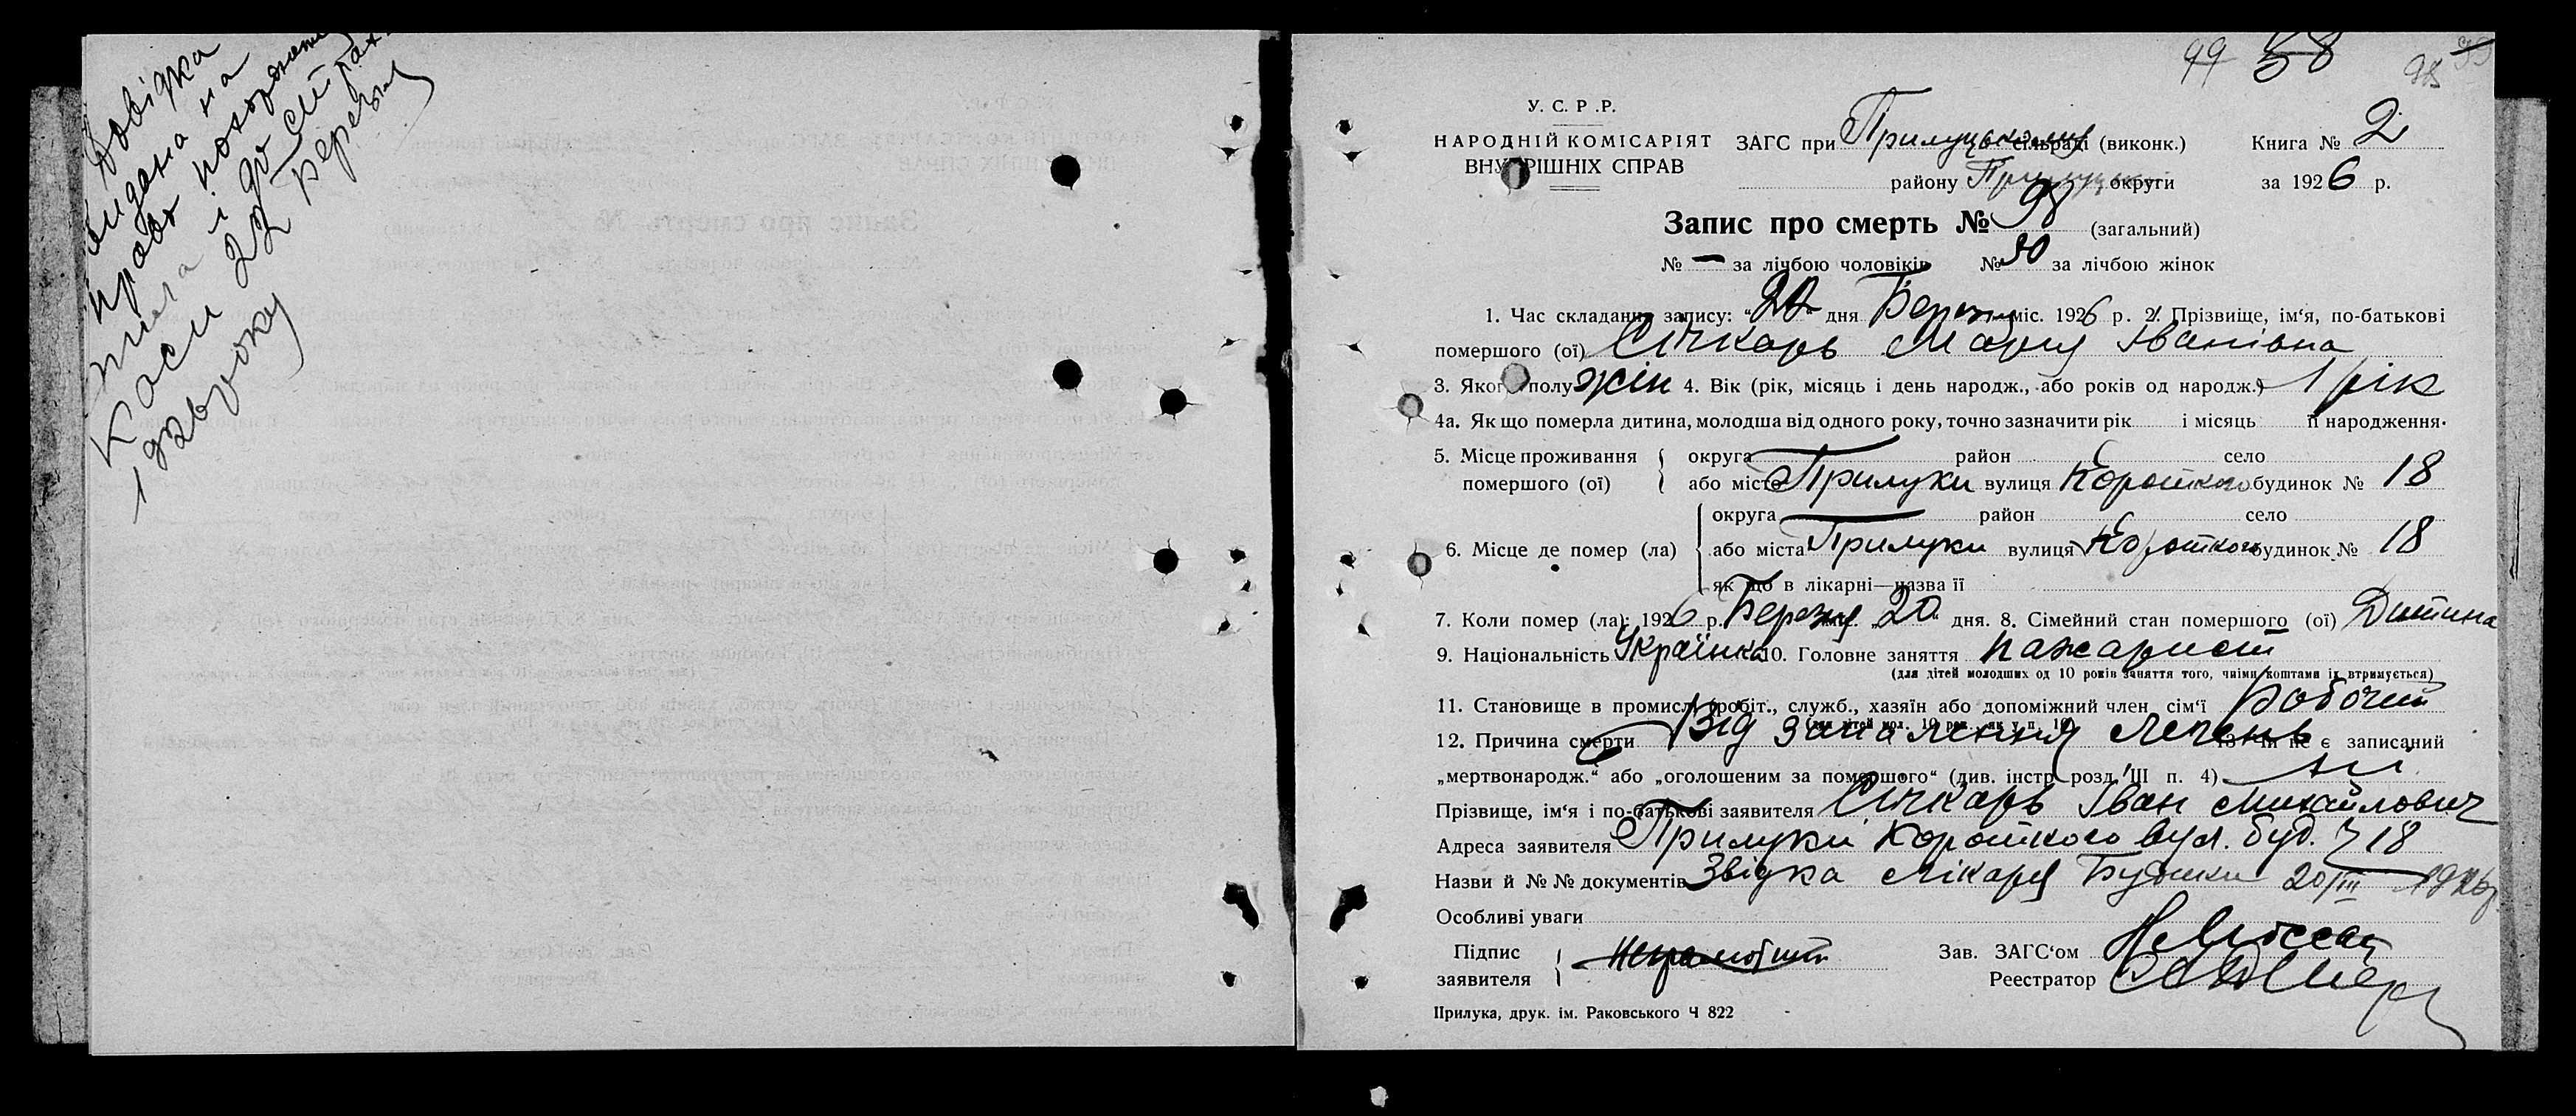 Довідка
видана на
право похорону
тіла і до страх.
Каси 22 березня
1926 року
99 58 98
У. С. Р. Р.
НАРОДНІЙ КОМІСАРІЯТ
ВНУТРІШНІХ СПРАВ
ЗАГС при Прилуцькому сільраді (виконк.) Книга № 2
району Прилуцької округи за 1926 р.
Запис про смерть № 98 (загальний)
№ — за лічбою чоловіків № 50 за лічбою жінок
1. Час складання запису: "22" дня Березня міс. 1926 р. 2. Прізвище, ім'я, по-батькові
помершого (ої) Січкарь Марія Іванівна
3. Якого полу жін 4. Вік (рік, місяць і день народж., або років од народж.) 1 рік
4а. Як що померла дитина, молодша від одного року, точно зазначити рік і місяць її народження.
5. Місце проживання помершого (ої) { округа район село
або місто Прилуки вулиця Короткого будинок № 18
6. Місце де помер (ла) { округа район село
або міста Прилуки вулиця Короткого будинок № 18
як що в лікарні—назва її
7. Коли помер (ла): 1926 р. Березня міс. "20" дня. 8. Сімейний стан помершого (ої) Дитина
9. Національність Українка 10. Головне заняття пажарист
(для дітей молодших од 10 років заняття того, чиїми коштами їх втримується)
11. Становище в промислі (робіт., служб., хазяїн або допоміжний член сім'ї робочий
(для дітей мол. 10 рок., як у п. 10)
12. Причина смерти Від запалення легень Із чи не є записаний
„мертвонародж.“ або „оголошеним за помершого“ (див. інстр розд III п. 4) ні
Прізвище, ім'я і по-батькові заявителя Січкарь Іван Михайлович
Адреса заявителя Прилуки Короткого вул. буд. Ч 18
Назви й №№ документів Звідка лікаря 20/III 1926 р.
Особливі уваги
Підпис заявителя { Неграмотний Зав. ЗАГС'ом
Реестратор
Прилука, друк. ім. Раковського Ч 822